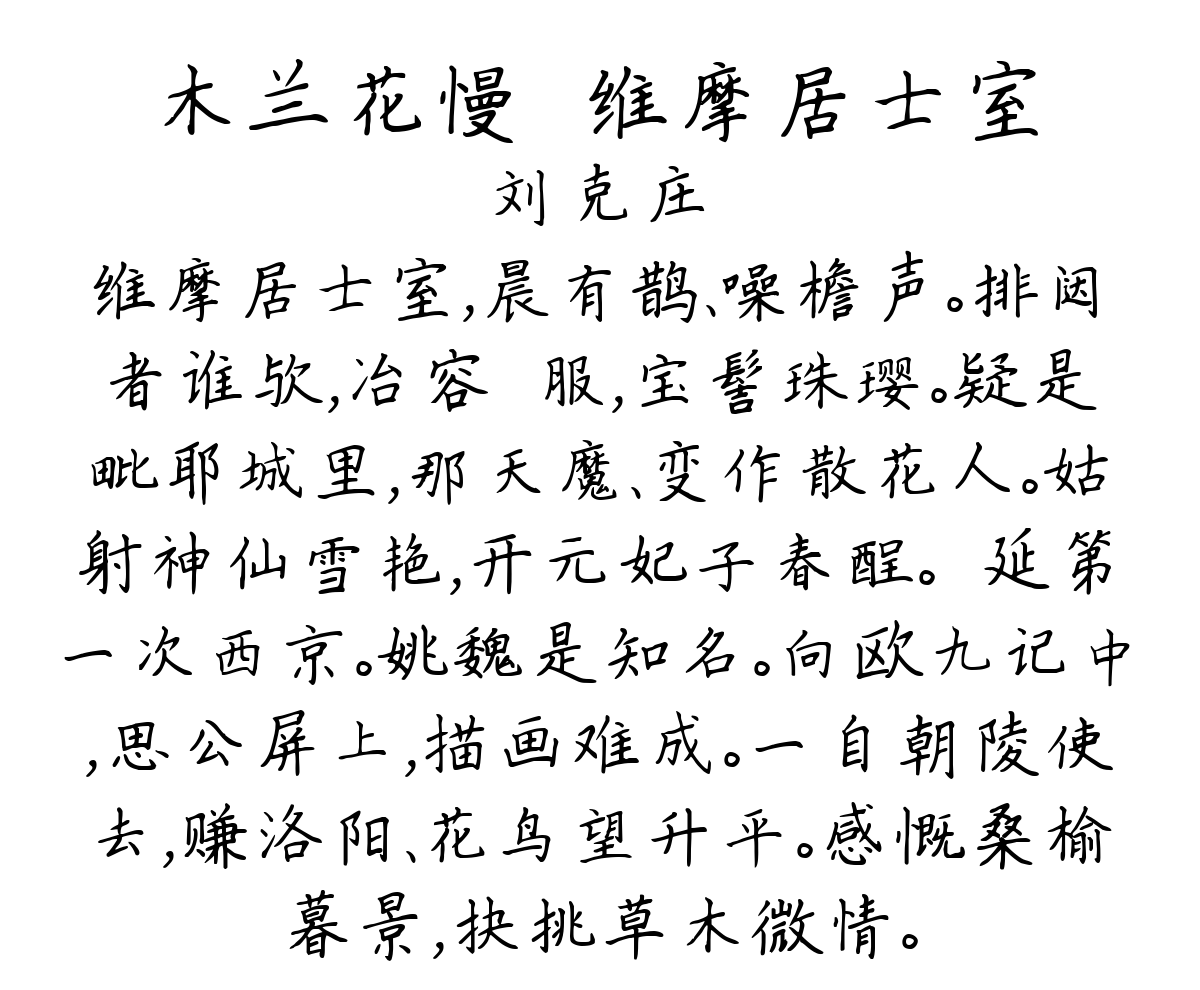 木兰花慢 维摩居士室
刘克庄
维摩居士室,晨有鹊、噪檐声。排闼
者谁欤,冶容 服,宝髻珠璎。疑是
毗耶城里,那天魔、变作散花人。姑
射神仙雪艳,开元妃子春酲。 延第
一次西京。姚魏是知名。向欧九记中
,思公屏上,描画难成。一自朝陵使
去,赚洛阳、花鸟望升平。感慨桑榆
暮景,抉挑草木微情。